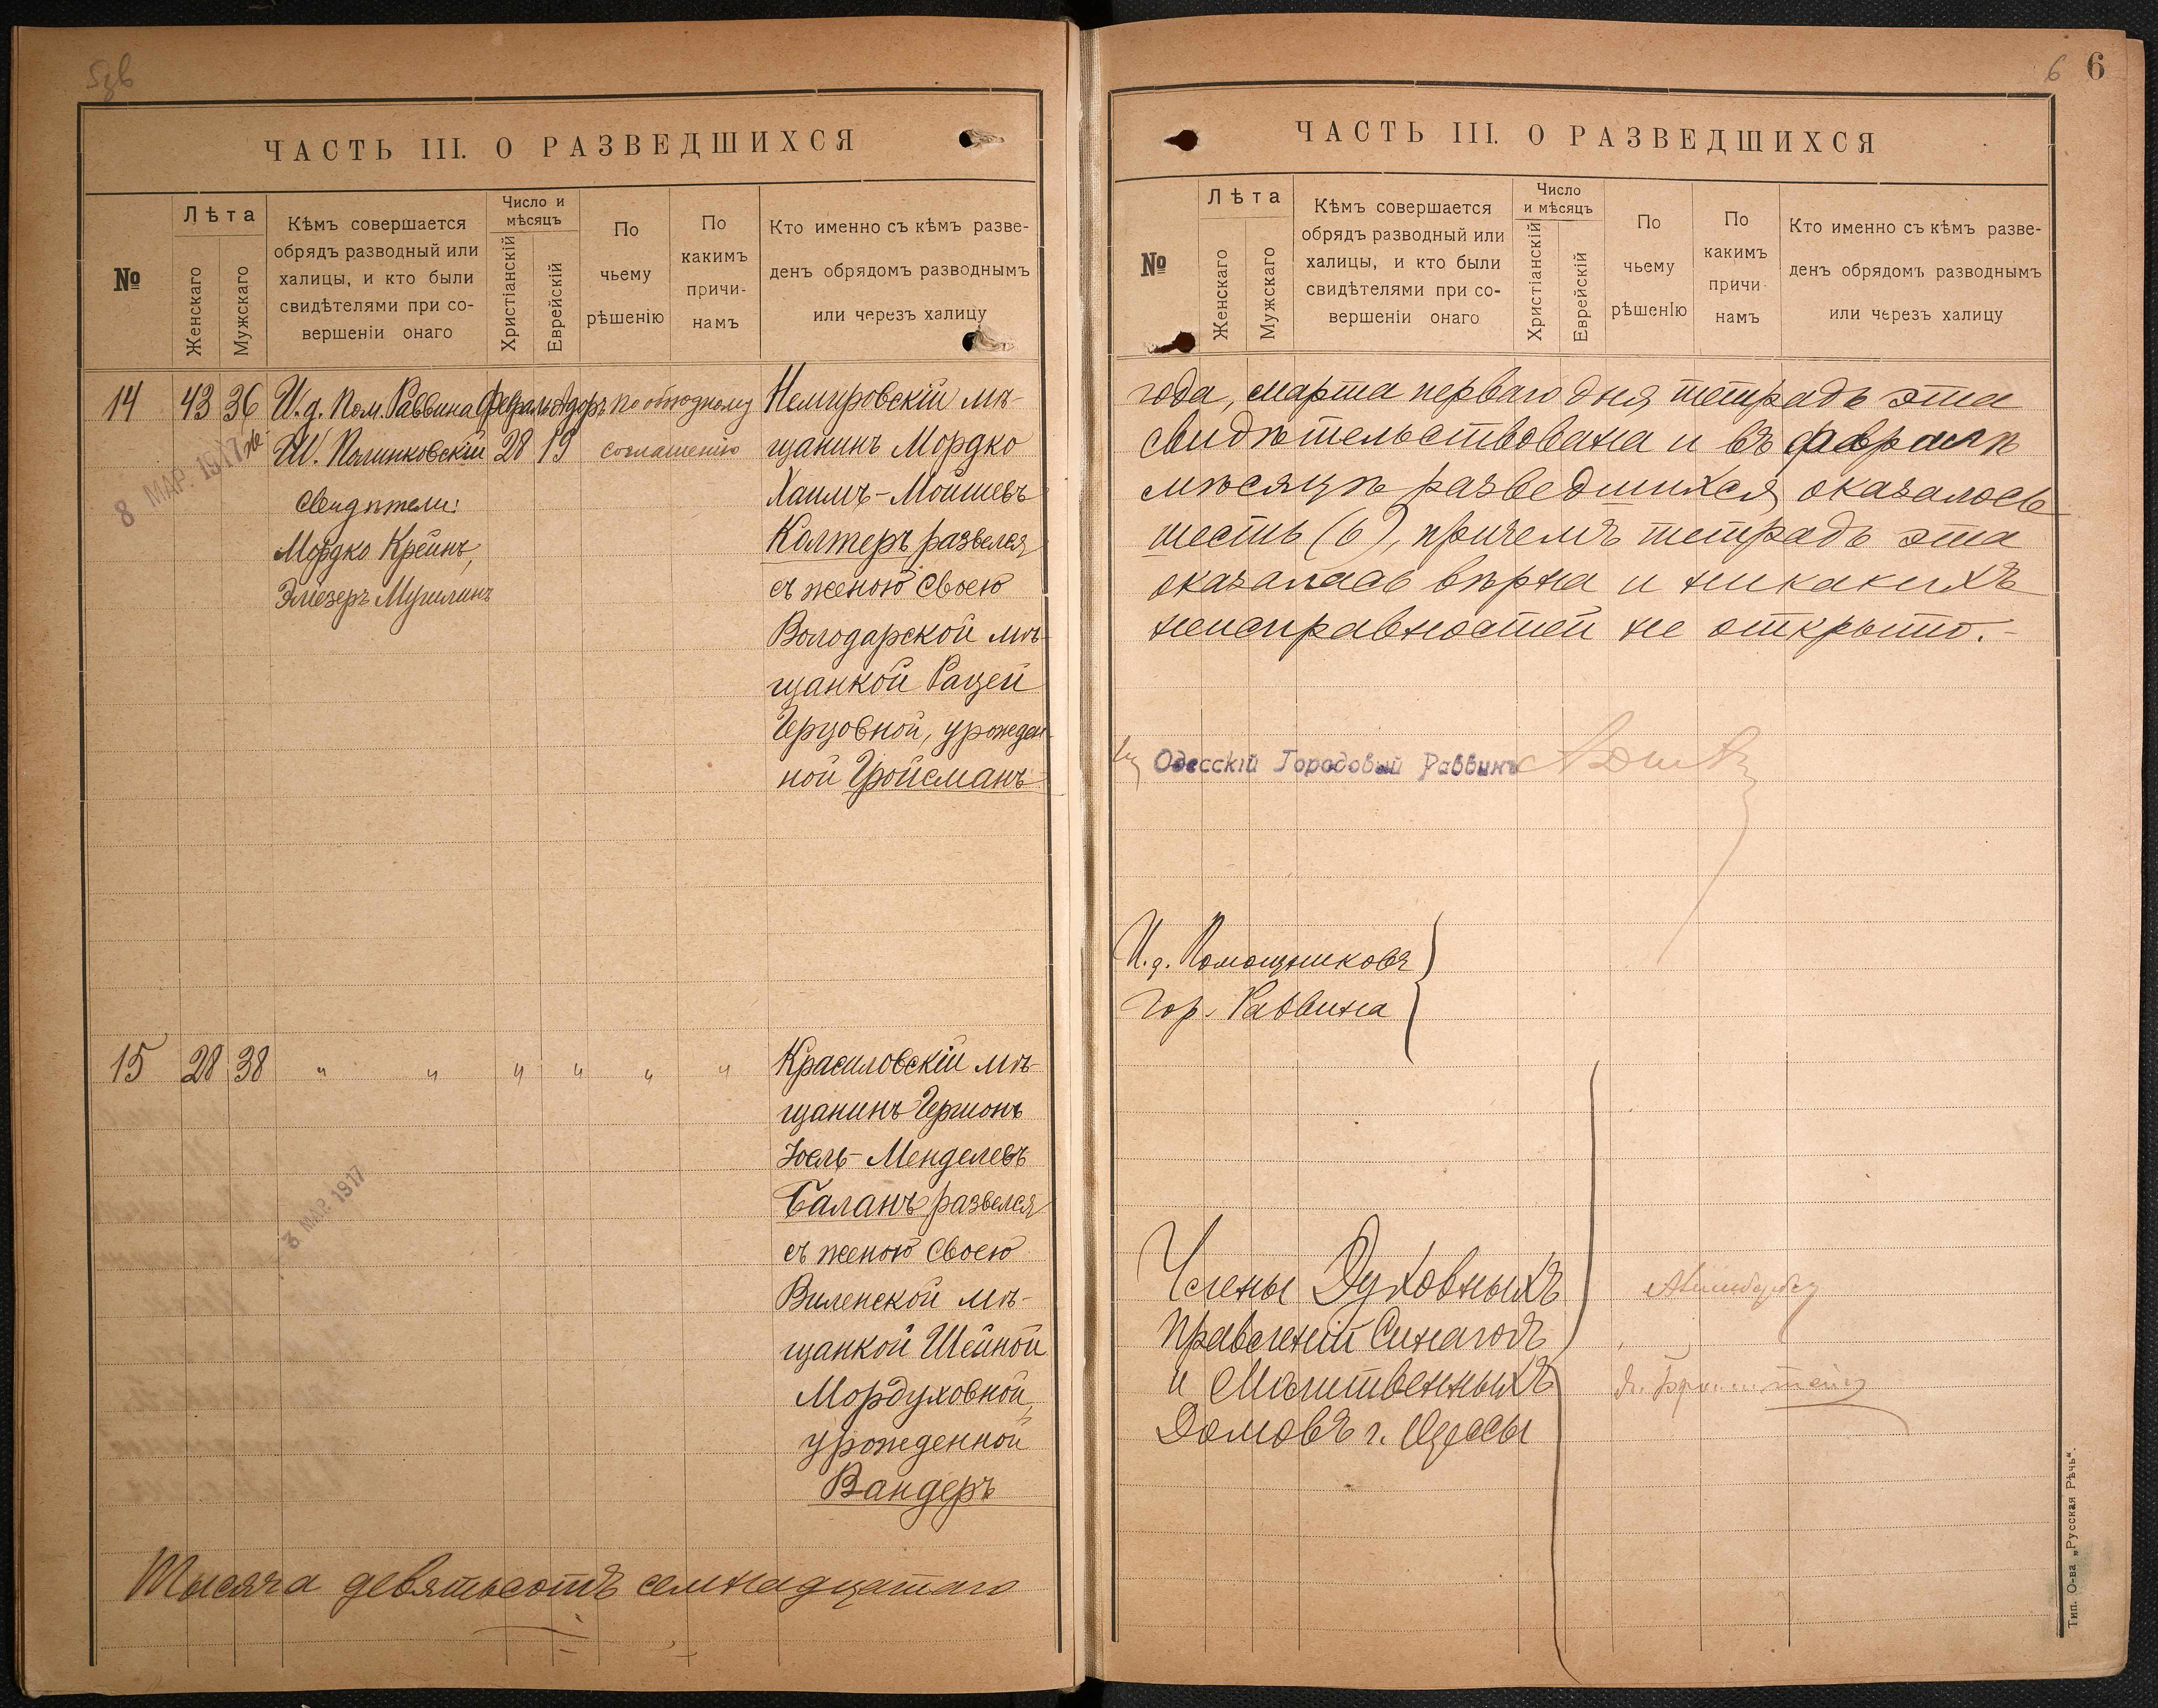 ЧАСТЬ III. О РАЗВЕДШИХСЯ
№
Лѣта
Женскаго
Мужскаго
Кѣмъ совершается
обрядъ разводный или
халицы, и кто были
свидѣтелями при со-
вершеніи онаго
Число и
мѣсяцъ
Христіанскій
Еврейскій
По
чьему
рѣшенію
По
какимъ
причи-
намъ
Кто именно съ кѣмъ разве-
денъ обрядомъ разводнымъ
или черезъ халицу
14 43 36 И.д. Пом. Раввина Февраль Адоръ по обоюдному Немировскій мѣ-
Ш. Полинковскій 28 19 соглашенію щанинъ Мордко
8 МАР. 1917
Свидѣтели: Хаимъ-Мойшевъ
Мордко Крейнъ, Колтеръ развелся
Эліезеръ Мучникъ съ женою своею
Володарской мѣ-
щанкой Рацей
Герцовной, урожден-
ной Гройсманъ
15 28 38 " " " " " " Красиловскій мѣ-
щанинъ Гершонъ
Іоель-Менделевъ
Баланъ развелся
съ женою своею
3 МАР. 1917
Виленской мѣ-
щанкой Шейной
Мордуховной,
урожденной
Вандеръ
Тысяча девятьсотъ семнадцатаго
6 6
ЧАСТЬ III. О РАЗВЕДШИХСЯ
№
Лѣта
Женскаго
Мужскаго
Кѣмъ совершается
обрядъ разводный или
халицы, и кто были
свидѣтелями при со-
вершеніи онаго
Число
и мѣсяцъ
Христіанскій
Еврейскій
По
чьему
рѣшенію
По
какимъ
причи-
намъ
Кто именно съ кѣмъ разве-
денъ обрядомъ разводнымъ
или черезъ халицу
года, марта перваго дня тетрадь эта
свидѣтельствована и въ февралѣ
мѣсяцѣ разведшихся оказалось
шесть (6), причемъ тетрадь эта
оказалась вѣрна и никакихъ
неисправностей не открыто.-
Одесскій Городовый Раввинъ
И.д. Помощниковъ
Гор. Раввина
Члены Духовныхъ
Правленій Синагогъ
и Молитвенныхъ
Домовъ г. Одессы
Тип. О-ва „Русская Рѣчь“.